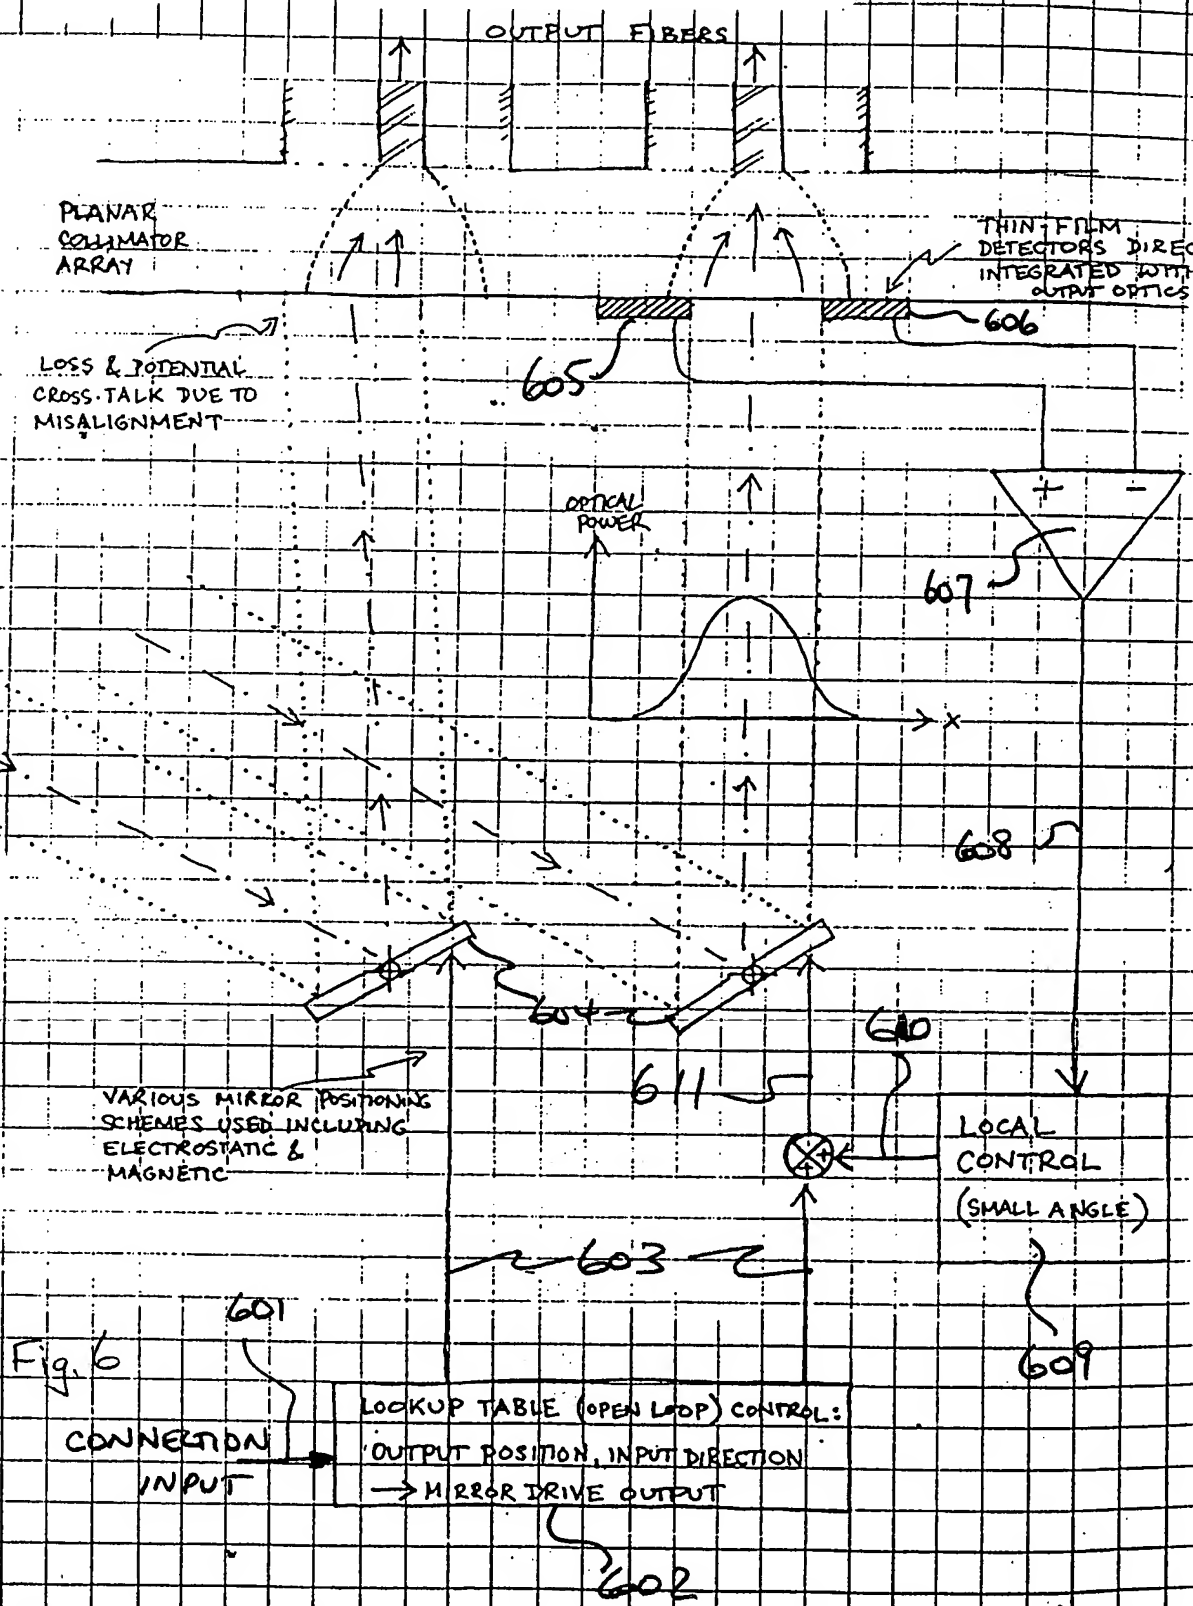 OUTPUT FIBERS
PLANAR
COLLIMATOR
ARRAY
THIN-FILM
DETECTORS DIREC
INTEGRATED WITH
OUTPUT OPTICS
606
605
LOSS & POTENTIAL
CROSS-TALK DUE TO
MISALIGNMENT
+ -
607
OPTICAL
POWER
x
608
604
610
611
VARIOUS MIRROR POSITIONING
SCHEMES USED INCLUDING
ELECTROSTATIC &
MAGNETIC
+
+
LOCAL
CONTROL
(SMALL ANGLE)
603
609
601
Fig. 6
CONNECTION
INPUT
LOOKUP TABLE (OPEN LOOP) CONTROL:
OUTPUT POSITION, INPUT DIRECTION
→ MIRROR DRIVE OUTPUT
602